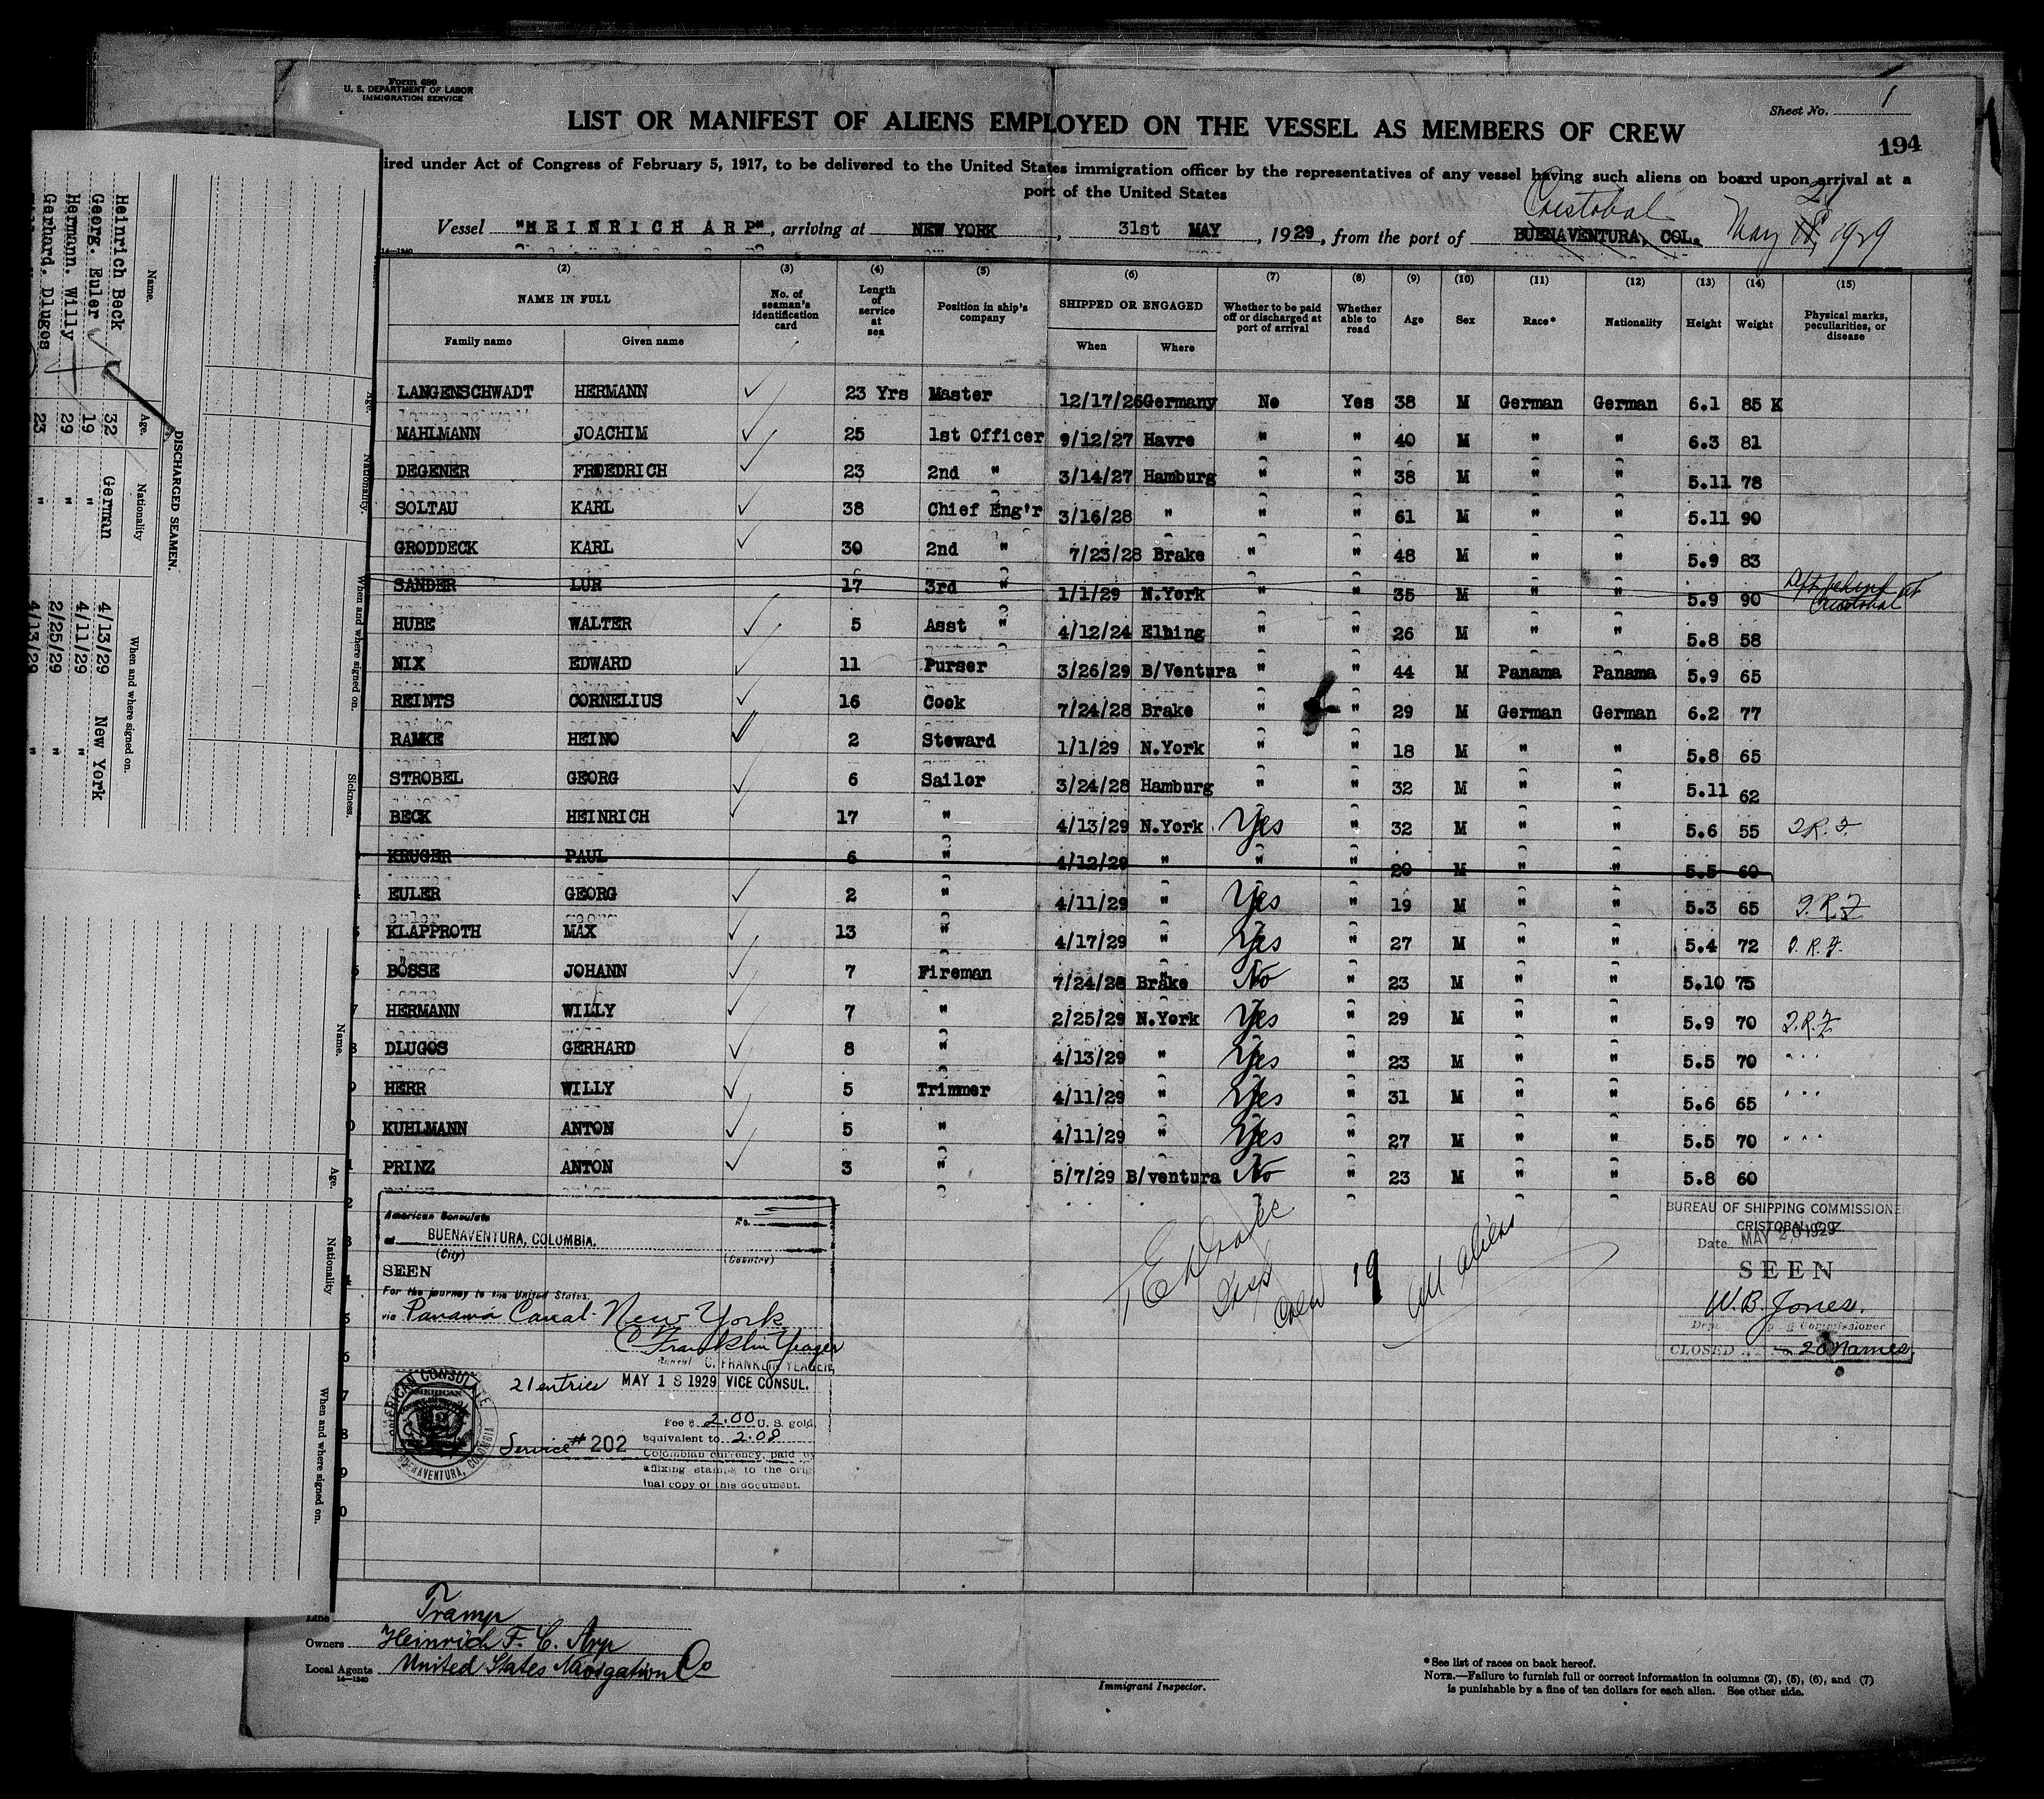 Form 689
U. S. DEPARTMENT OF LABOR
IMMIGRATION SERVICE
Sheet No. 1
194
LIST OR MANIFEST OF ALIENS EMPLOYED ON THE VESSEL AS MEMBERS OF CREW
ired under Act of Congress of February 5, 1917, to be delivered to the United States immigration officer by the representatives of any vessel having such aliens on board upon arrival at a
port of the United States
Cristobal 21
Vessel "HEINRICH ARP", arriving at NEW YORK, 31st MAY, 1929, from the port of BUENAVENTURA, COL. May 18, 1929
14—1240
(2) (3) (4) (5) (6) (7) (8) (9) (10) (11) (12) (13) (14) (15)
NAME IN FULL No. of seaman's identification card Length of service at sea Position in ship's company SHIPPED OR ENGAGED Whether to be paid off or discharged at port of arrival Whether able to read Age Sex Race* Nationality Height Weight Physical marks, peculiarities, or disease
Family name Given name When Where
LANGENSCHWADT HERMANN ✓ 23 Yrs Master 12/17/26 Germany No Yes 38 M German German 6.1 85 K
MAHLMANN JOACHIM ✓ 25 1st Officer 9/12/27 Havre " " 40 M " " 6.3 81
DEGENER FRIEDRICH ✓ 23 2nd " 3/14/27 Hamburg " " 38 M " " 5.11 78
SOLTAU KARL ✓ 38 Chief Eng'r 3/16/28 " " " 61 M " " 5.11 90
GRODDECK KARL ✓ 30 2nd " 7/23/28 Brake " " 48 M " " 5.9 83
SANDER LUR 17 3rd " 1/1/29 N.York " " 35 M " " 5.9 90 left behind at Cristobal
HUBE WALTER ✓ 5 Asst " 4/12/24 Elbing " " 26 M " " 5.8 58
NIX EDWARD ✓ 11 Purser 3/26/29 B/Ventura " " 44 M Panama Panama 5.9 65
REINTS CORNELIUS ✓ 16 Cook 7/24/28 Brake " " 29 M German German 6.2 77
RAMKE HEINO ✓ 2 Steward 1/1/29 N.York " " 18 M " " 5.8 65
STROBEL GEORG ✓ 6 Sailor 3/24/28 Hamburg " " 32 M " " 5.11 62
BECK HEINRICH ✓ 17 " 4/13/29 N.York Yes " 32 M " " 5.6 55
KRUGER PAUL 6 " 4/12/29 " " " 20 M " " 5.5 60
EULER GEORG ✓ 2 " 4/11/29 " Yes " 19 M " " 5.3 65
KLAPPROTH MAX ✓ 13 " 4/17/29 " Yes " 27 M " " 5.4 72
BÖSSE JOHANN ✓ 7 Fireman 7/24/28 Brake No " 23 M " " 5.10 75
HERMANN WILLY ✓ 7 " 2/25/29 N.York Yes " 29 M " " 5.9 70
DLUGOS GERHARD ✓ 8 " 4/13/29 " Yes " 23 M " " 5.5 70 " " "
HERR WILLY ✓ 5 Trimmer 4/11/29 " Yes " 31 M " " 5.6 65 " " "
KUHLMANN ANTON ✓ 5 " 4/11/29 " Yes " 27 M " " 5.5 70 " " "
PRINZ ANTON ✓ 3 " 5/7/29 B/ventura No " 23 M " " 5.8 60
American Consulate No.
at BUENAVENTURA, COLOMBIA.
(City) (Country)
SEEN
For the journey to the United States.
via Panama Canal - New York
C Franklin Yeager
C. FRANKLIN YEAGER,
21 entries MAY 18 1929 VICE CONSUL.
Fee $ 2.00 U. S. gold,
equivalent to 2.08
Service # 202
Colombian currency, paid by
affixing stamps to the orig-
inal copy of this document.
AMERICAN CONSULATE
BUENAVENTURA, COLOMBIA
Crew 19 All aliens
BUREAU OF SHIPPING COMMISSIONER
CRISTOBAL C.Z.
Date MAY 20 1929
SEEN
W. B. Jones.
Commissioner
CLOSED 20 names.
Line Tramp
Owners Heinrich F. C. Arp
Local Agents United States Navigation Co
14—1240
Immigrant Inspector.
*See list of races on back hereof.
NOTE.—Failure to furnish full or correct information in columns (2), (5), (6), and (7)
is punishable by a fine of ten dollars for each alien. See other side.
DISCHARGED SEAMEN.
Name. Age. Nationality When and where signed on.
Heinrich Beck 32 German 4/13/29 New York
Georg. Euler 19 " 4/11/29 "
Hermann. Willy 29 " 2/25/29 "
Gerhard. Dlugos 23 " 4/13/29 "
Age. Nationality. When and where signed on. Sickness.
Name. Age. Nationality When and where signed on.